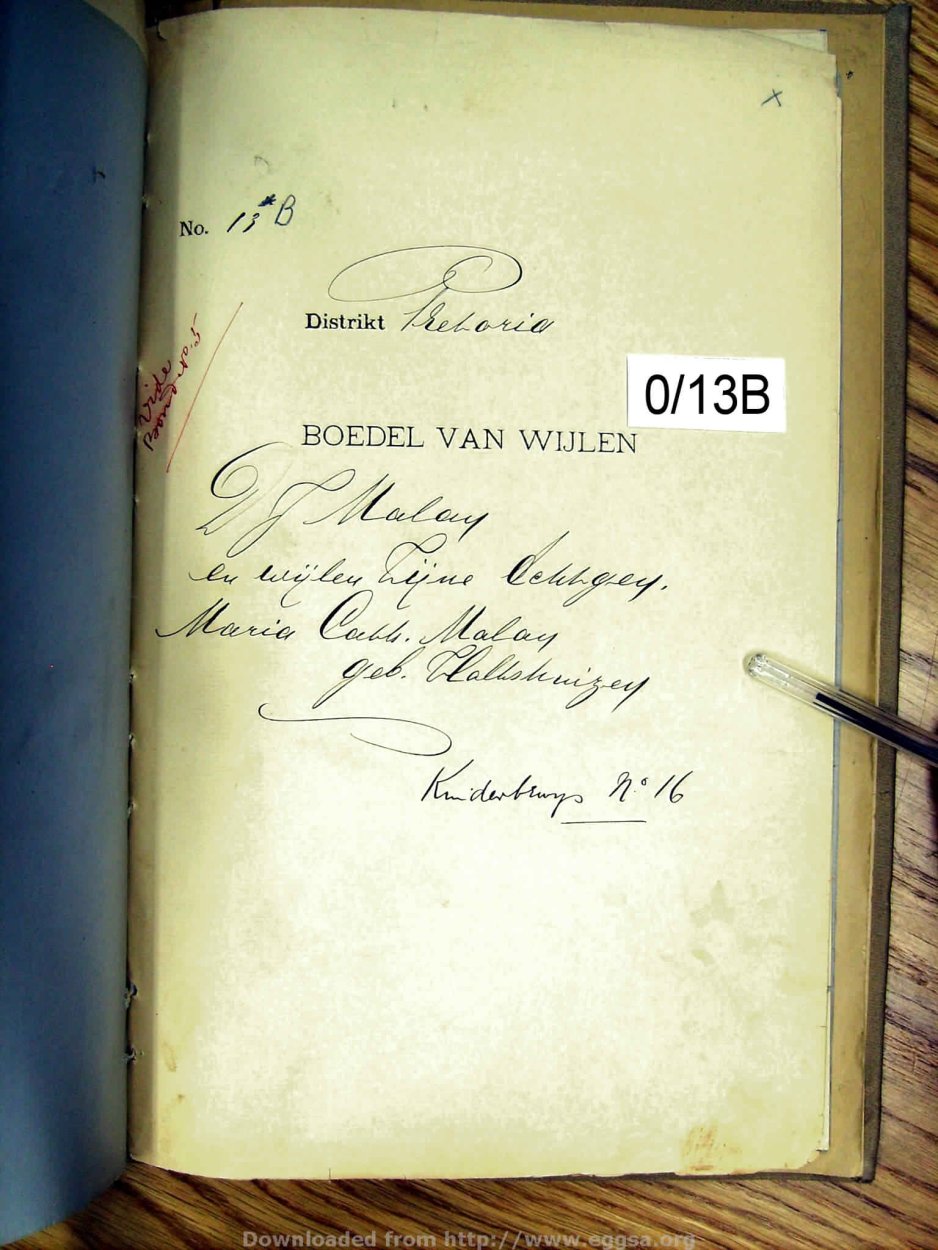 x
No. 13 B
Distrikt Pretoria
Vide
Bond No. 5
0/13B
BOEDEL VAN WIJLEN
D J Malan
en wijlen Zijne Echtgen.
Maria Cath. Malan
geb. Holtshuizen
Kinderbewys No. 16
Downloaded from http://www.eggsa.org